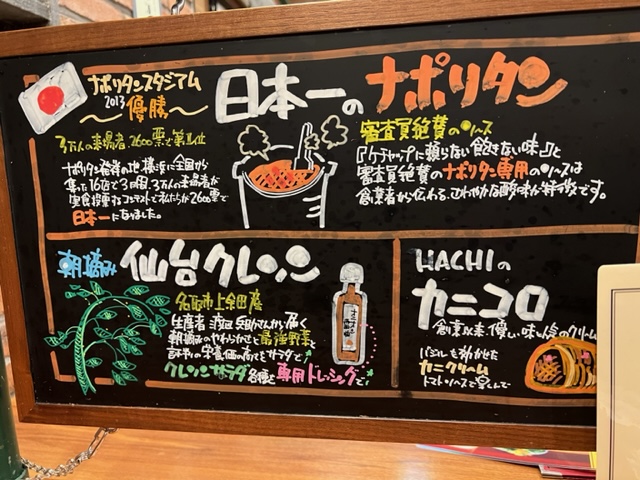 ナポリタンスタジアム
2013 優勝
日本一のナポリタン
3万人の来場者、2600票で第1位
ナポリタン発祥の地 横浜に全国から
集った16店で3日間、3万人の来場者が
実食投票するコンテストで私たちが2600票で
日本一になりました。
審査員絶賛のソース
『ケチャップに頼らない飽きない味』と
審査員絶賛のナポリタン専用のソースは
創業者から伝わる、さわやかな酸味が特徴です。
朝摘み 仙台クレソン
名取市上余田産
生産者 さんから届く
朝摘みのやわらかくて
栄養価の高いサラダで
クレソンサラダ 各種と専用ドレッシングで
HACHIの
カニコロ
創業以来、優しい味で人気のクリーム
カニクリーム
トマトソースで